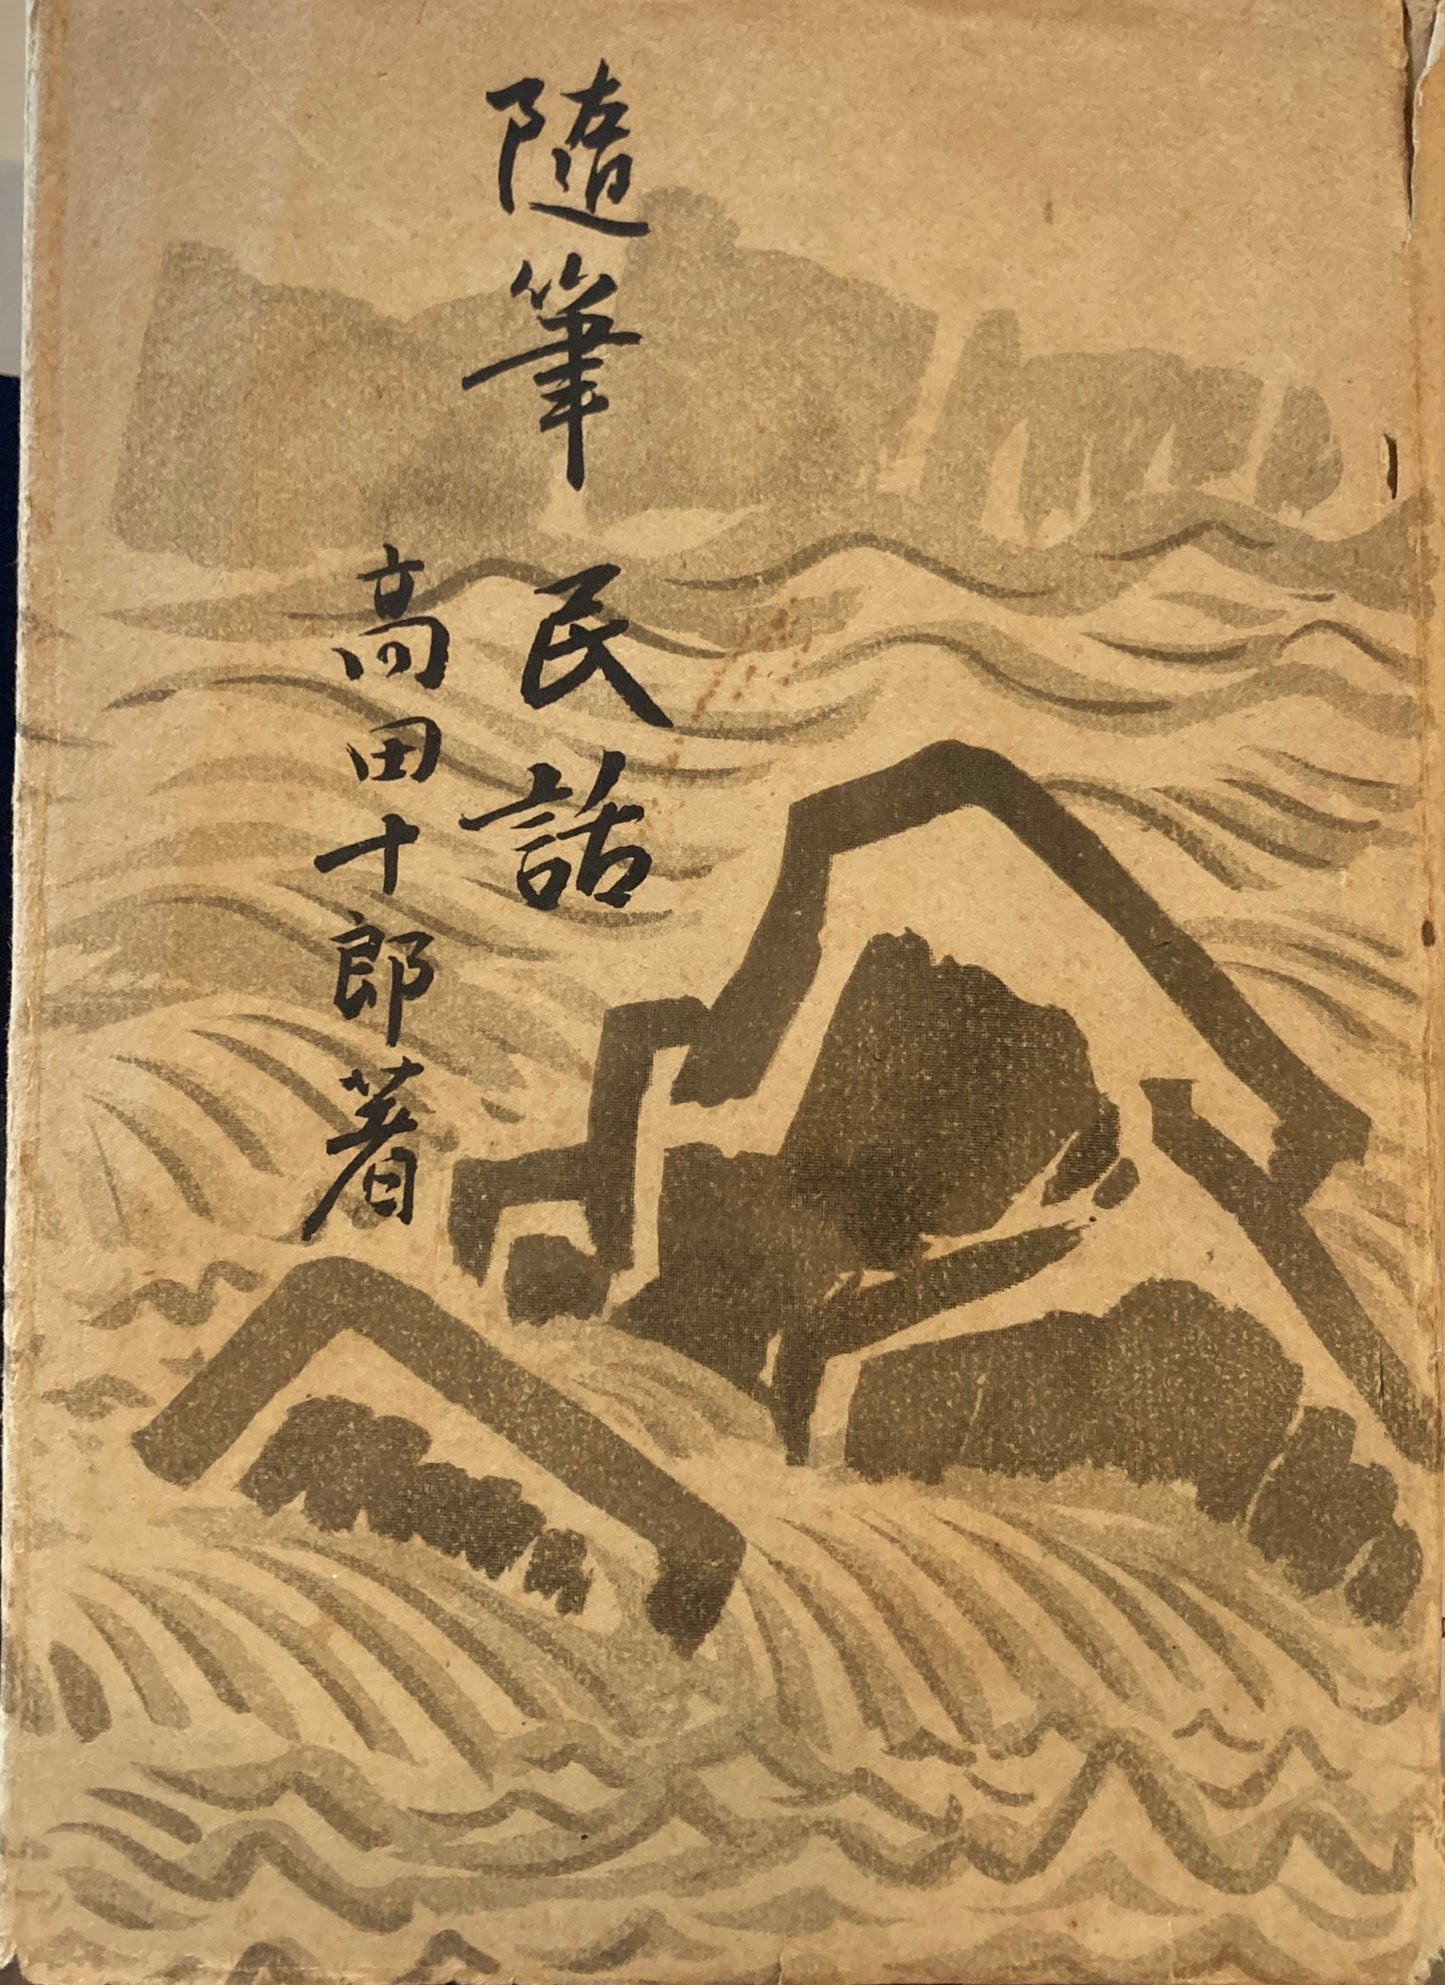 隨筆民話
高田十郎著